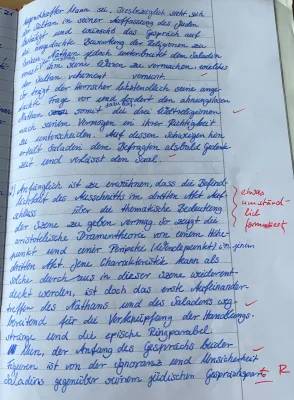 tugendhafter Mann sei. Diesbezüglich sieht sich
der Sultan in seiner Auffassung des Juden
bestätigt und wünscht das Gespräch auf
die angedachte Bewertung der Religionen zu
lenken. Nathan jedoch unterbreitet dem Saladin
seine Waren zu vermachen, welches
der Sultan vehement verneint.
So trägt der Herrscher letztendlich seine ange-
dachte Frage vor und fordert den ahnungslosen
Nathan somit auf, die drei Weltreligionen
nach seinem Vermögen in ihrer Richtigkeit
zu unterscheiden. Auf dessen Schweigen hin
erteilt Saladin dem Befragten alsbald Gedenk-
zeit und verlässt den Saal.
Anfänglich ist zu erwähnen, dass die Befind-
lichkeit des Ausschnitts im dritten Akt Auf-
schluss über die thematische Bedeutung
der Szene zu geben vermag. So zeugt die
aristotelische Dramentheorie von einem Höhe-
punkt und einer Peripetie (Wendepunkt) in jenem
dritten Akt. Jene Charakteristik kann als
solche durchaus in dieser Szene wiederent-
deckt werden, ist doch das erste Aufeinander-
treffen des Nathans und des Saladins weg-
bereitend für die Verknüpfung der Handlungs-
stränge und die epische Ringparabel.
Nun, der Anfang des Gesprächs beider
Figuren ist von der Ignoranz und Unsicherheit
Saladins gegenüber seinem jüdischen Gesprächspart
etwas
umständ-
lich
formuliert
R